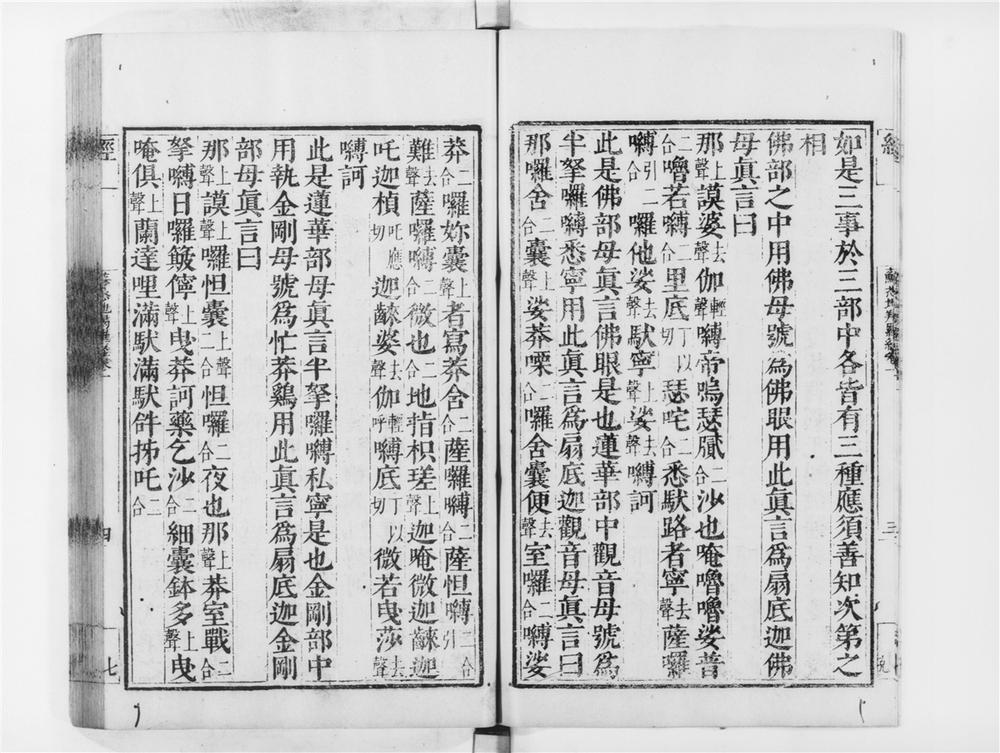 如是三事於三部中各皆有三種應須善知次第之
相
佛部之中用佛母號為佛眼用此眞言爲扇底迦佛
母眞言曰
那上聲謨婆去聲伽輕聲嚩帝嗚瑟膩二合沙也唵嚕嚕娑普
二合嚕若嚩二合里底丁以切瑟咤二合悉馱路者寧去聲薩囉
嚩引二合囉他娑去聲馱寧上聲娑去聲嚩訶
此是佛部母眞言佛眼是也蓮華部中觀音母號爲
半拏囉嚩悉寧用此眞言爲扇底迦觀音母眞言曰
那囉舍二合囊上聲娑莽㗚二合囉舍囊便去聲室囉二合嚩娑
莽二合囉妳囊上聲者寫莽舍二合薩囉嚩二合薩怛嚩二合引
難去聲薩囉嚩二合微也二合地指枳瑳上聲迦唵微迦𪘨迦
吒迦楨吒應切迦𪘨娑去聲伽輕呼嚩底丁以切微若曳莎去聲
嚩訶
此是蓮華部母眞言半拏囉嚩私寧是也金剛部中
用執金剛母號爲忙莽鷄用此眞言爲扇底迦金剛
部母眞言曰
那上聲謨上聲囉怛囊上聲二合怛囉二合夜也那上聲莽室戰二合
拏嚩日囉簸儜上聲曳莽訶藥乞沙二合細囊鉢多上聲曳
唵俱上聲蘭達哩滿馱滿馱𤙖抪吒二合
經
三
經
四
七